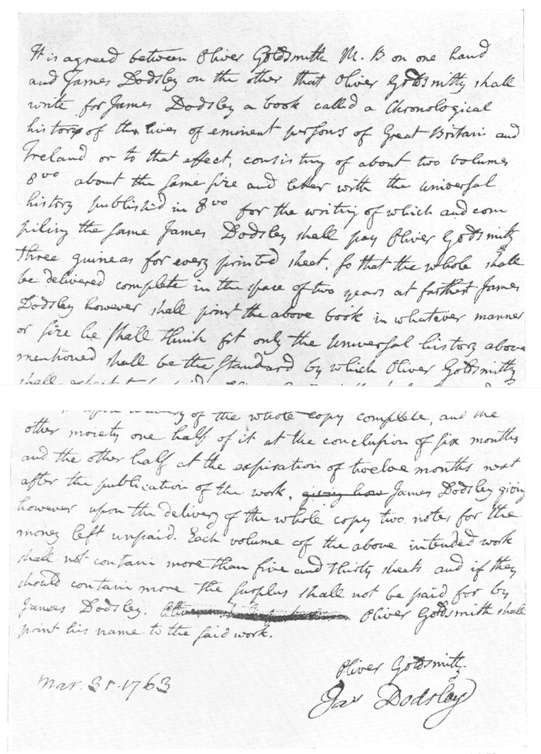 It is agreed between Oliver Goldsmith M. B on one hand
and James Dodsley on the other that Oliver Goldsmith shall
write for James Dodsley a book called a Chronological
history of the lives of eminent persons of Great Britain and
Ireland or to that effect, consisting of about two volumes
8vo about the same size and letter with the universal
history published in 8vo for the writing of which and com
piling the same James Dodsley shall pay Oliver Goldsmith
three guineas for every printed sheet, so that the whole shall
be delivered complete in the space of two years at farthest James
Dodsley however shall print the above book in whatever manner
or size he shall think fit only the Universal history above
mentioned shall be the standard by which Oliver Goldsmith
shall expect to be paid.
of the whole copy complete, and the
other moiety one half of it at the conclusion of six months
and the other half at the expiration of twelve months next
after the publication of the work, James Dodsley giving
however upon the delivery of the whole copy two notes for the
money left unpaid. Each volume of the above intended work
shall not contain more than five and thirty sheets and if they
should contain more the surplus shall not be paid for by
James Dodsley. Oliver Goldsmith shall
print his name to the said work.
Oliver Goldsmith.
Mar. 31. 1763
Jas Dodsley